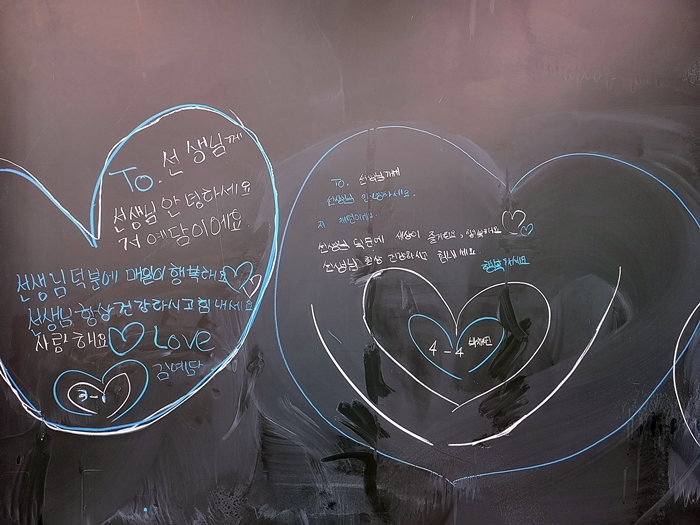 To. 선생님께
선생님 안녕하세요
저 예담이에요
선생님 덕분에 매일이 행복해요
선생님 항상 건강하시고 힘내세요
사랑해요 Love
김예담
3-1
To. 선생님께
선생님 안녕하세요.
저 채민이에요
선생님 덕분에 세상이 즐거워요, 행복해요
선생님 항상 건강하시고 힘내세요
행복하세요
4-4